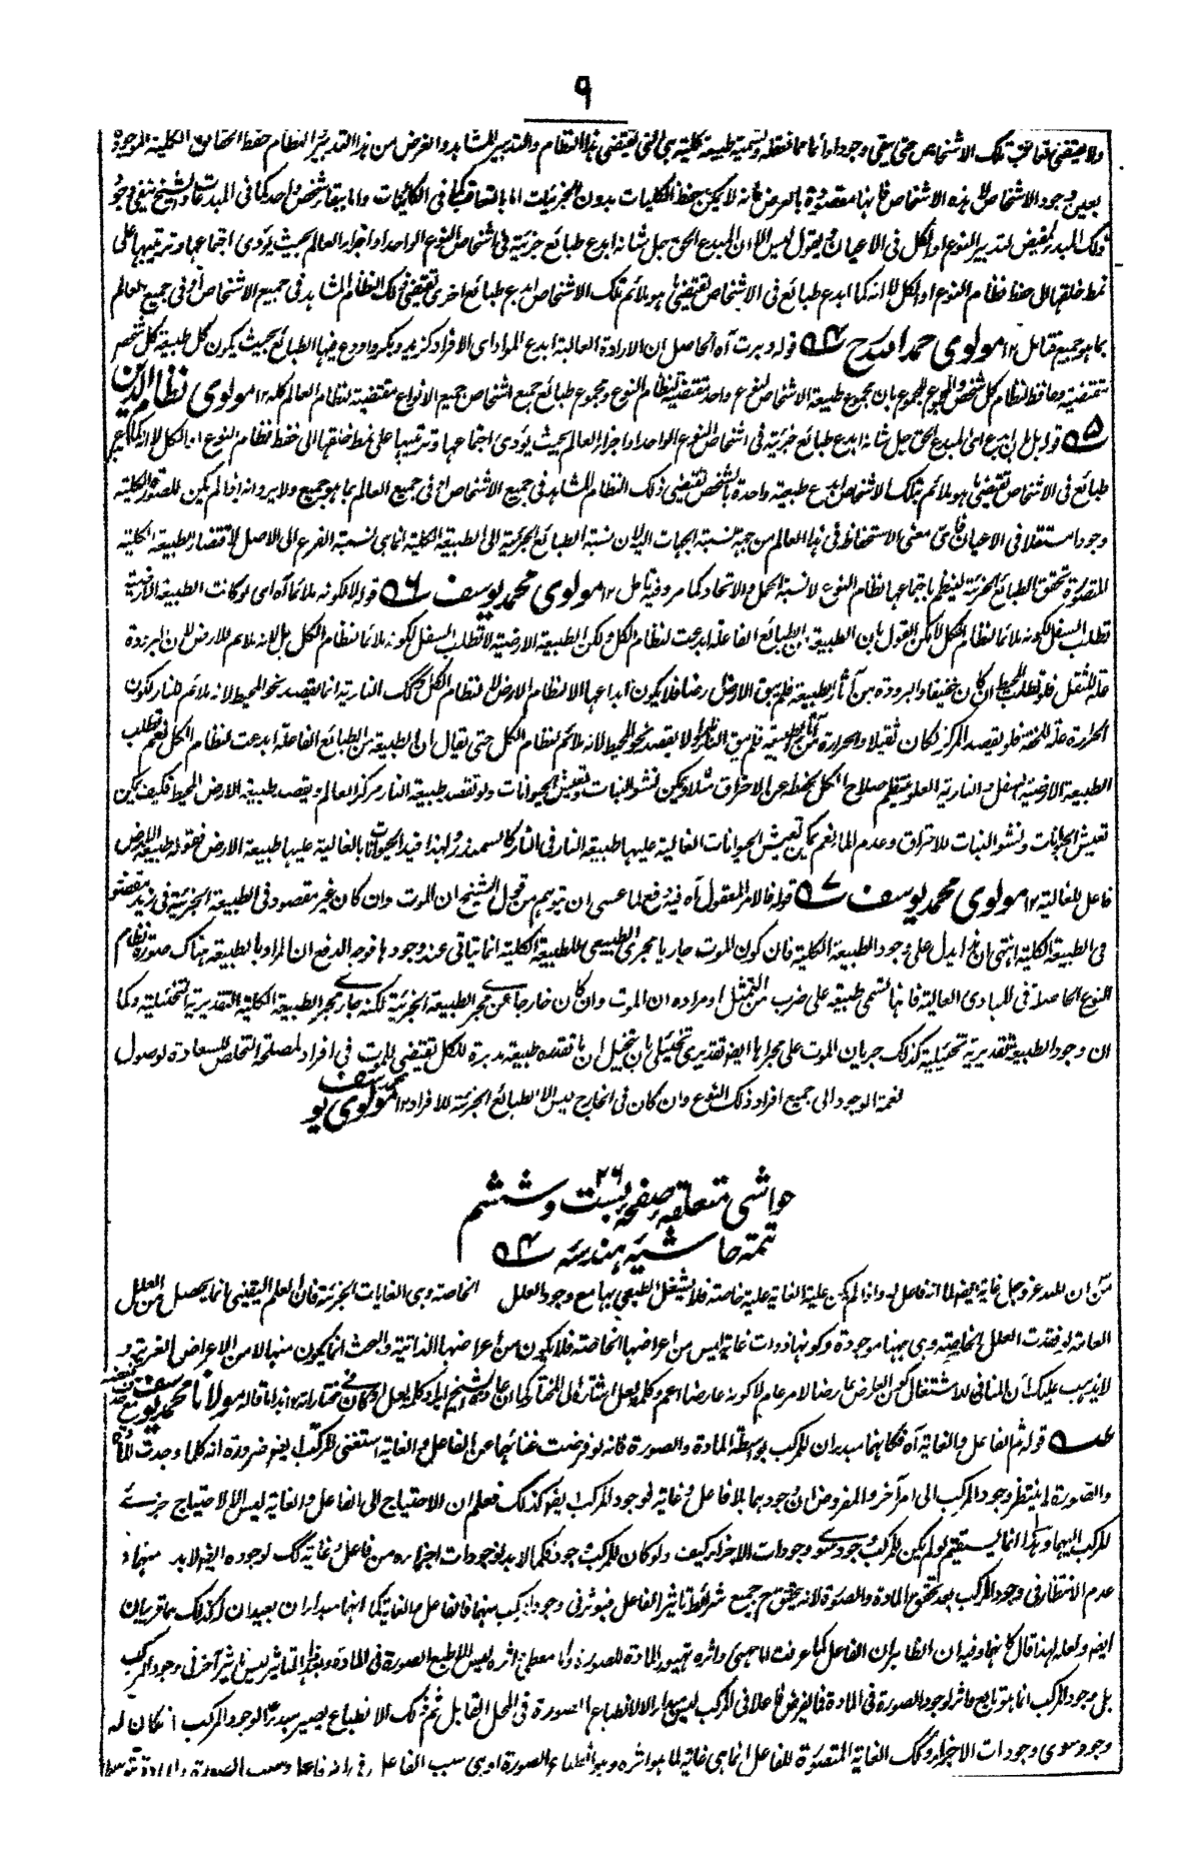 ٩
ولا يقتضى تعاقب تلك الاشخاص حتى يبقى وجودا دائما وتسمية طبيعة كلية هى التى تقتضى هذا النظام والتدبير المشاهد والغرض من هذا التدبير والنظام حفظ الحقائق الكلية الموجودة
بعين وجود الاشخاص لا هذه الاشخاص فانها مقصودة بالعرض فانه لا يمكن حفظ الكليات بدون الجزئيات اما بالتعاقب كما فى الكائنات واما ببقاء شخص واحد كما فى المبدعات والشيخ ينفى وجود
ذلك المبدء المفيض لتدبير النوع او الكل فى الاعيان ويقول ليس الا ان المبدع الحق جل شانه ابدع طبائع جزئية فى اشخاص النوع الواحد او اجزاء العالم بحيث يؤدى اجتماعها وترتيبها على
نمط خلقها الى حفظ نظام النوع او الكل لا انه كما ابدع طبائع فى الاشخاص تقتضى ما هو يلائم تلك الاشخاص ابدع طبائع اخرى تقتضى ذلك النظام المشاهد فى جميع الاشخاص او فى جميع العالم
بما هو جميع فتامل ١٢ مولوى حمد الله ح ٥٤ قوله دبرت آه الحاصل ان الارادة العالية ابدع المواد اى الافراد كزيد وبكر واودع فيها الطبائع بحيث يكون كل طبيعة كل شخص
مقتضية وحافظة لنظام كل شخص والمجموع للمجموع بان مجموع طبيعة الاشخاص لنوع واحد مقتضية لنظام النوع ومجموع طبائع جميع اشخاص جميع الانواع مقتضية لنظام العالم كله ١٢ مولوى نظام الدين
٥٥ قوله بل ابدع اى المبدع الحق جل شانه ابدع طبائع جزئية فى اشخاص النوع الواحد او اجزاء العالم بحيث يؤدى اجتماعها وترتيبها على نمط خلقها الى حفظ نظام النوع او الكل لا انه كما ابدع
طبائع فى الاشخاص تقتضى ما هو يلائم تلك الاشخاص ابدع طبيعة واحدة بالشخص تقتضى ذلك النظام المشاهد فى جميع الاشخاص او فى جميع العالم بما هو جميع ولا يرد انه اذا لم يكن للصورة الكلية
وجودا مستقلا فى الاعيان فاى معنى الاستحفاظ فى هذا العالم من جهة نسبة الجهات اليه لان نسبة الطبائع الجزئية الى الطبيعة الكلية انما هى نسبة الفرع الى الاصل لاقتضاء الطبيعة الكلية
المتصورة تحقق الطبائع الجزئية لينظم باجتماعها نظام النوع لا نسبة الحمل والاتحاد كما مر فيه تامل ١٢ مولوى محمد يوسف ٥٦ قوله لا لكونه ملائما آه اى لو كانت الطبيعة الارضية
تطلب السفل لكونه ملائما لنظام الكل لامكن القول بان الطبيعة من الطبائع الفاعلة ابدعت لنظام الكل ولكن الطبيعة الارضية لا تطلب السفل لكونه ملائما لنظام الكل بل لانه ملائم للارض لان البرودة
علة للثقل فلو تطلب المحيط لكان خفيفا والبرودة من آثار الطبيعة فلم يبق الارض ارضا فلا يكون ابداعها الا لنظام الارض لا لنظام الكل وكذلك النارية انما يقصد نحو المحيط لانه ملائم للنار لكون
الحرارة علة للخفة فلو يقصد المركز لكان ثقيلا والحرارة من آثار الطبيعة فلم يبق النار نارا ولا يقصد نحو المحيط لانه ملائم لنظام الكل حتى يقال ان الطبيعة من الطبائع الفاعلة ابدعت لنظام الكل نعم تطلب
الطبيعة الارضية السفل والنارية العلو ينتظم صلاح الكل بحفظه عن الاحتراق مثلا ويمكن نشو النبات وتعيش الحيوانات ولو تقصد طبيعة النار مركز العالم ويقصد طبيعة الارض المحيط فكيف يمكن
تعيش الحيوانات ونشو النبات للاحتراق وعدم الماء نعم يمكن تعيش الحيوانات الغالبة عليها طبيعة النار فى النار كالسمندر ولهذا قيد الحيوانات بالغالبة عليها طبيعة الارض فقوله طبيعة الارض
فاعل للغالبة ١٢ مولوى محمد يوسف ٥٧ قوله فالامر المعقول آه فيه دفع لما عسى ان يتوهم من قول الشيخ ان الموت وان كان غير مقصود فى الطبيعة الجزئية فى زيد مقصود
فى الطبيعة الكلية انتهى ان هذا يدل على وجود الطبيعة الكلية فان كون الموت جاريا مجرى الطبيعى للطبيعة الكلية انما يتاتى عند وجودها فوجه الدفع ان المراد بالطبيعة هناك صورة نظام
النوع الحاصلة فى المبادى العالية فانها تسمى طبيعة على ضرب من التمثل او مراده ان الموت وان كان خارجا عن مجرى الطبيعة الجزئية لكنه جار مجرى الطبيعة الكلية التقديرية التخئيلية وكما
ان وجود الطبيعة تقديرية تخئيلية كذلك جريان الموت على مجراها ايضا تقديرى تخئيلى بان يتخيل ان هناك طبيعة مدبرة للكل تقتضى الموت فى افراد لمصلحة التخلص للسعادة لوصول
نعمة الوجود الى جميع افراد ذلك النوع وان كان فى الخارج ليس الا الطبائع الجزئية للافراد ١٢ مولوى محمد يوسف
حواشى متعلقه صفحه ٢٦ بست وششم
تتمة حاشيه هندسه ٥٤
من ان للمبدء عز وجل غاية ايضا لما انه فاعل له واذا لم يكن علية الغاية علية خاصته فلا يشتغل الطبيعى بها مع وجود العلل الخاصة وهى الغايات الجزئية فان العلم اليقينى انما يحصل من العلل
العامة لو فقدت العلل الخاصة وهى ههنا موجودة وكونها ذوات غاية ليس من اعراضها الخاصة فلا يكون من اعراضها الذاتية والبحث انما يكون منها لا من الاعراض الغريبة و
لا يذهب عليك ان المنافى للاشتغال كون العارض عارضا لامر عام لا كونه عارضا اعم وكلمة لعل اشارة الى المختار كما ان عادة الشيخ ايراد كلمة لعل وان كان مختاراته هذا ما قاله مولانا محمد يوسف
عه قوله ثم الفاعل والغاية آه فكانهما مبدءان للمركب بواسطة المادة والصورة فانه لو فرضت غنائهما عن الفاعل والغاية استغنى المركب ايضا ضرورة انه كلما وجدت المادة
والصورة لم ينتظر وجود المركب الى امر آخر والمفروض ان وجودهما بلا فاعل وغاية لوجود المركب ايضا كذلك فعلم ان الاحتياج الى الفاعل والغاية ليس الا لاحتياج جزئى
المركب اليهما وهذا انما يستقيم لو لم يكن للمركب وجود سوى وجودات الاجزاء كيف ولو كان للمركب وجود فكما لا بد لوجودات اجزاءه من فاعل وغاية كذلك لوجوده ايضا لا بد منهما و
عدم الانتظار فى وجود المركب بعد تحقق المادة والصورة لانه يتحقق ح جميع شرائط تاثير الفاعل فيؤثر فى وجود المركب منهما فالفاعل والغاية كما انهما مبداان بعيدان له كذلك هما قريبان
ايضا ولعله لهذا قال كانهما وفيه ان الظاهر ان الفاعل كما عرفت اما مهيئ واثره تهيؤ المادة للصورة واما معطى واثره ليس الا طبع الصورة فى المادة وبعد هذا التاثير ليس تاثير آخر فى وجود المركب
بل وجود المركب انما هو تابع فاثر لوجود الصورة فى المادة فالمفروض فاعلا فى المركب ليس مبدءا الا لانطباع الصورة فى المحل القابل ثم ذلك الانطباع يصير مبدءا لوجود المركب ان كان له
وجود سوى وجودات الاجزاء وكذلك الغاية المتصورة للفاعل انما هى غاية لما هو اثره وهو انطباع الصورة او هى سبب الفاعل